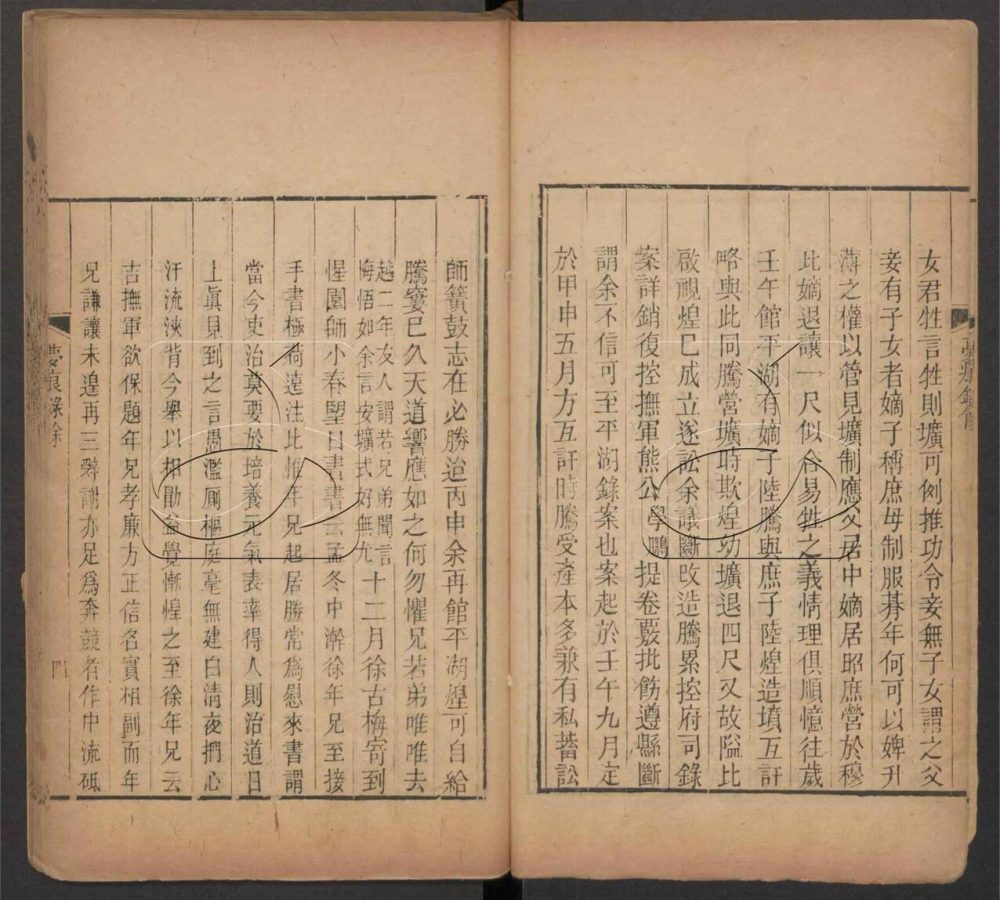 女君牲言牲則壙可例推功令妾無子女謂之父
妾有子女者嫡子稱庶母制服朞年何可以婢升
薄之權以管見壙制應父居中嫡居昭庶營於穆
此嫡退讓一尺似合易牲之義情理俱順憶往歲
壬午館平湖有嫡子陸騰與庶子陸煌造墳互訐
略與此同騰營壙時欺煌幼壙退四尺又故隘比
啟視煌巳成立遂訟余議斷改造騰累控府司錄
案詳銷復控撫軍熊公學鵬提卷覈批飭遵縣斷
謂余不信可至平湖錄案也案起於壬午九月定
於甲申五月方互訐時騰受產本多兼有私蓄訟
師簧鼓志在必勝迨丙申余再館平湖煌可自給
騰窶巳久天道響應如之何勿懼兄若弟唯唯去
越二年友人謂若兄弟聞言
悔悟如余言安壙式好無尤十二月徐古梅寄到
惺園師小春望日書書云孟冬中澣徐年兄至接
手書極荷遠注比惟年兄起居勝常爲慰來書謂
當今吏治莫要於培養元氣表率得人則治道日
上眞見到之言愚濫厠樞庭毫無建白清夜捫心
汗流浹背今舉以相勖益覺慚惶之至徐年兄云
吉撫軍欲保題年兄孝廉方正信名實相副而年
兄謙讓未遑再三辭謝亦足爲奔競者作中流砥
夢痕錄餘
四